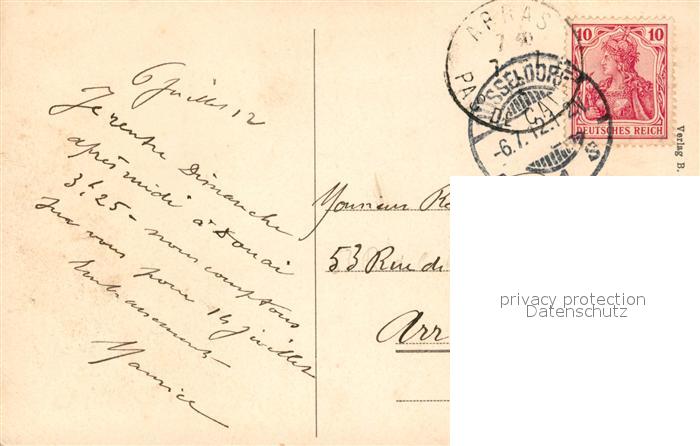 6 Juillet 12
Je rentre Dimanche
après midi à Douai
3h25 - nous comptons
sur vous pour 14 juillet
Embrassements
Maurice
Monsieur
53 Rue de
Arr
ARRAS
7
PAS DE CALAIS
DÜSSELDORF
-6.7.12.1-2N
10 10
DEUTSCHES REICH
Verlag B.
privacy protection
Datenschutz